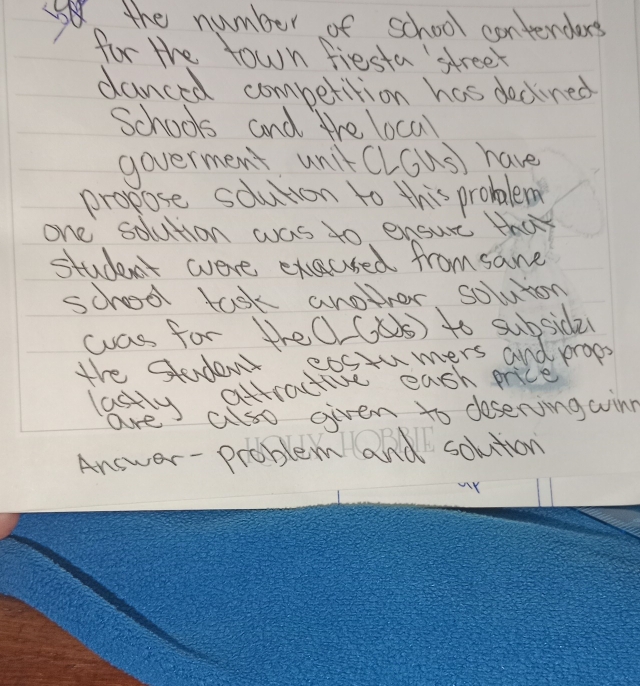 the number of school contenders
for the town fiesta street
danced competition has declined
Schools and the local
goverment unit (LGUs) have
propose solution to this problem
one solution was to ensure that
student were exacused from sane
school task another solution
was for the (LGUs) to subsidzi
the student costumers and props
lastly attractive cash price
are also given to deserving winn
HOLLY HOBBIE
Answer - problem and solution